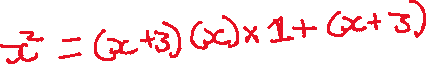 x² = (x+3)(x)×1+(x+3)